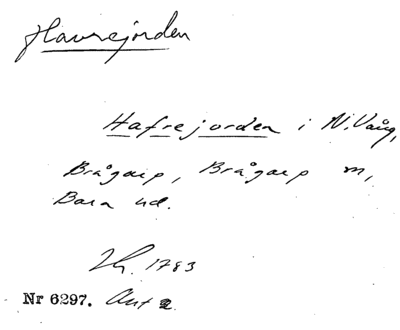 Havrejorden
Hafrejorden i N. Vång,
Brågarp, Brågarp m,
Bara hd.
1783
Nr 6297. Ant